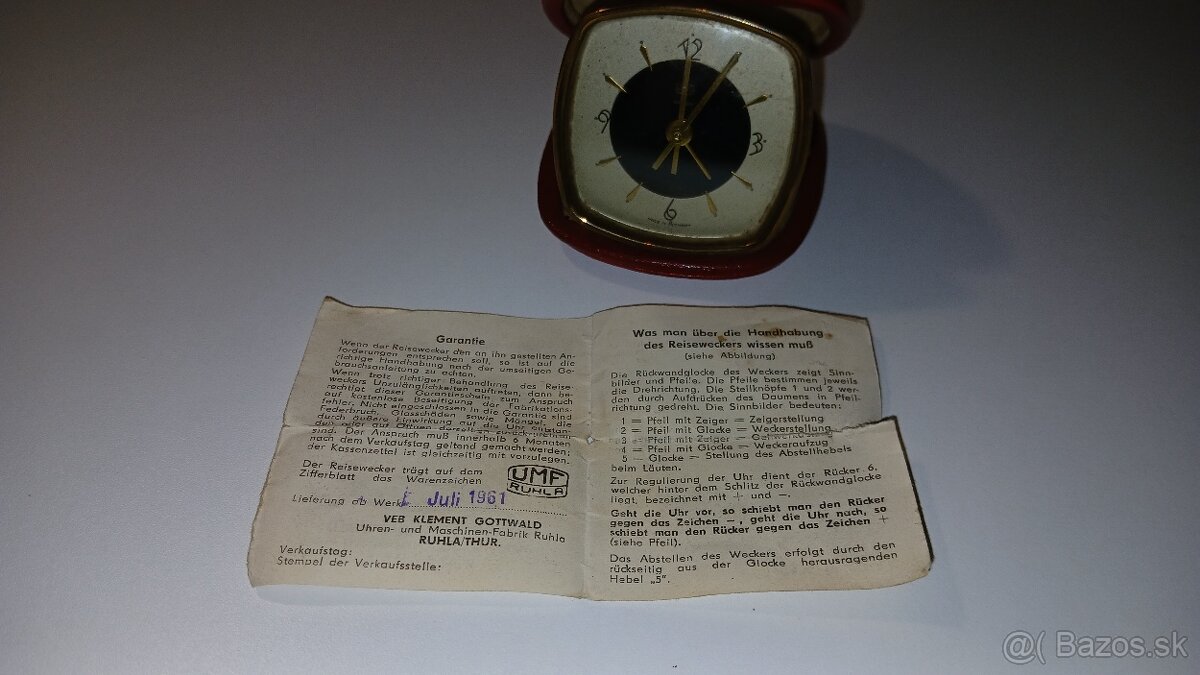 12
3
6
9
Garantie
Wenn der Reisewecker den an ihn gestellten An-
forderungen entsprechen soll, so ist auf die
richtige Handhabung nach der umseitigen Ge-
brauchsanleitung zu achten.
Wenn trotz richtiger Behandlung des Reise-
weckers Unzulänglichkeiten auftreten, dann be-
rechtigt dieser Garantieschein zum Anspruch
auf kostenlose Beseitigung der Fabrikations-
fehler. Nicht eingeschlossen in die Garantie sind
Federbruch, Glasschäden sowie Mängel, die
durch äußere Einwirkung auf die Uhr
sind. Der Anspruch muß innerhalb 6 Monaten
nach dem Verkaufstag geltend gemacht werden;
der Kassenzettel ist gleichzeitig mit vorzulegen.
Der Reisewecker trägt auf dem
Zifferblatt das Warenzeichen
UMF
RUHLA
Lieferung ab Werk Juli 1961
VEB KLEMENT GOTTWALD
Uhren- und Maschinen-Fabrik Ruhla
RUHLA/THUR.
Verkaufstag:
Stempel der Verkaufsstelle:
Was man über die Handhabung
des Reiseweckers wissen muß
(siehe Abbildung)
Die Rückwandglocke des Weckers zeigt Sinn-
bilder und Pfeile. Die Pfeile bestimmen jeweils
die Drehrichtung. Die Stellknöpfe 1 und 2 wer-
den durch Aufdrücken des Daumens in Pfeil-
richtung gedreht. Die Sinnbilder bedeuten:
1 = Pfeil mit Zeiger = Zeigerstellung
2 = Pfeil mit Glocke = Weckerstellung
3 = Pfeil mit Zeiger =
4 = Pfeil mit Glocke = Weckeraufzug
5 = Glocke = Stellung des Abstellhebels
beim Läuten.
Zur Regulierung der Uhr dient der Rücker 6,
welcher hinter dem Schlitz der Rückwandglocke
liegt, bezeichnet mit + und −.
Geht die Uhr vor, so schiebt man den Rücker
gegen das Zeichen −, geht die Uhr nach, so
schiebt man den Rücker gegen das Zeichen +
(siehe Pfeil).
Das Abstellen des Weckers erfolgt durch den
rückseitig aus der Glocke herausragenden
Hebel „5".
@( Bazos.sk